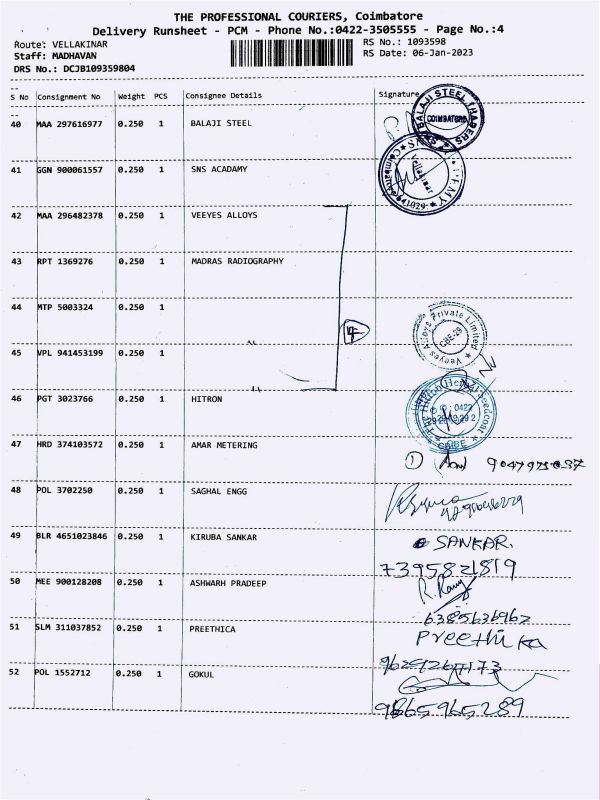 THE PROFESSIONAL COURIERS, Coimbatore
Delivery Runsheet - PCM - Phone No.:0422-3505555 - Page No.:4
Route: VELLAKINAR
Staff: MADHAVAN
DRS No.: DCJB109359804
RS No.: 1093598
RS Date: 06-Jan-2023
S No Consignment No Weight PCS Consignee Details Signature
40 MAA 297616977 0.250 1 BALAJI STEEL
BALAJI STEEL TRADERS
COIMBATORE
41 GGN 900061557 0.250 1 SNS ACADAMY
Coimbatore
Vellakinar
641029
42 MAA 296482378 0.250 1 VEEYES ALLOYS
43 RPT 1369276 0.250 1 MADRAS RADIOGRAPHY
44 MTP 5003324 0.250 1
Veeyes Alloys Private Limited
CBE-29
4
45 VPL 941453199 0.250 1
46 PGT 3023766 0.250 1 HITRON
0422
CBE
47 HRD 374103572 0.250 1 AMAR METERING
1
48 POL 3702250 0.250 1 SAGHAL ENGG
49 BLR 4651023846 0.250 1 KIRUBA SANKAR
SANKAR.
7395821819
50 MEE 900128208 0.250 1 ASHWARH PRADEEP
6385636962
51 SLM 311037852 0.250 1 PREETHICA
Preethika
52 POL 1552712 0.250 1 GOKUL
9865965289